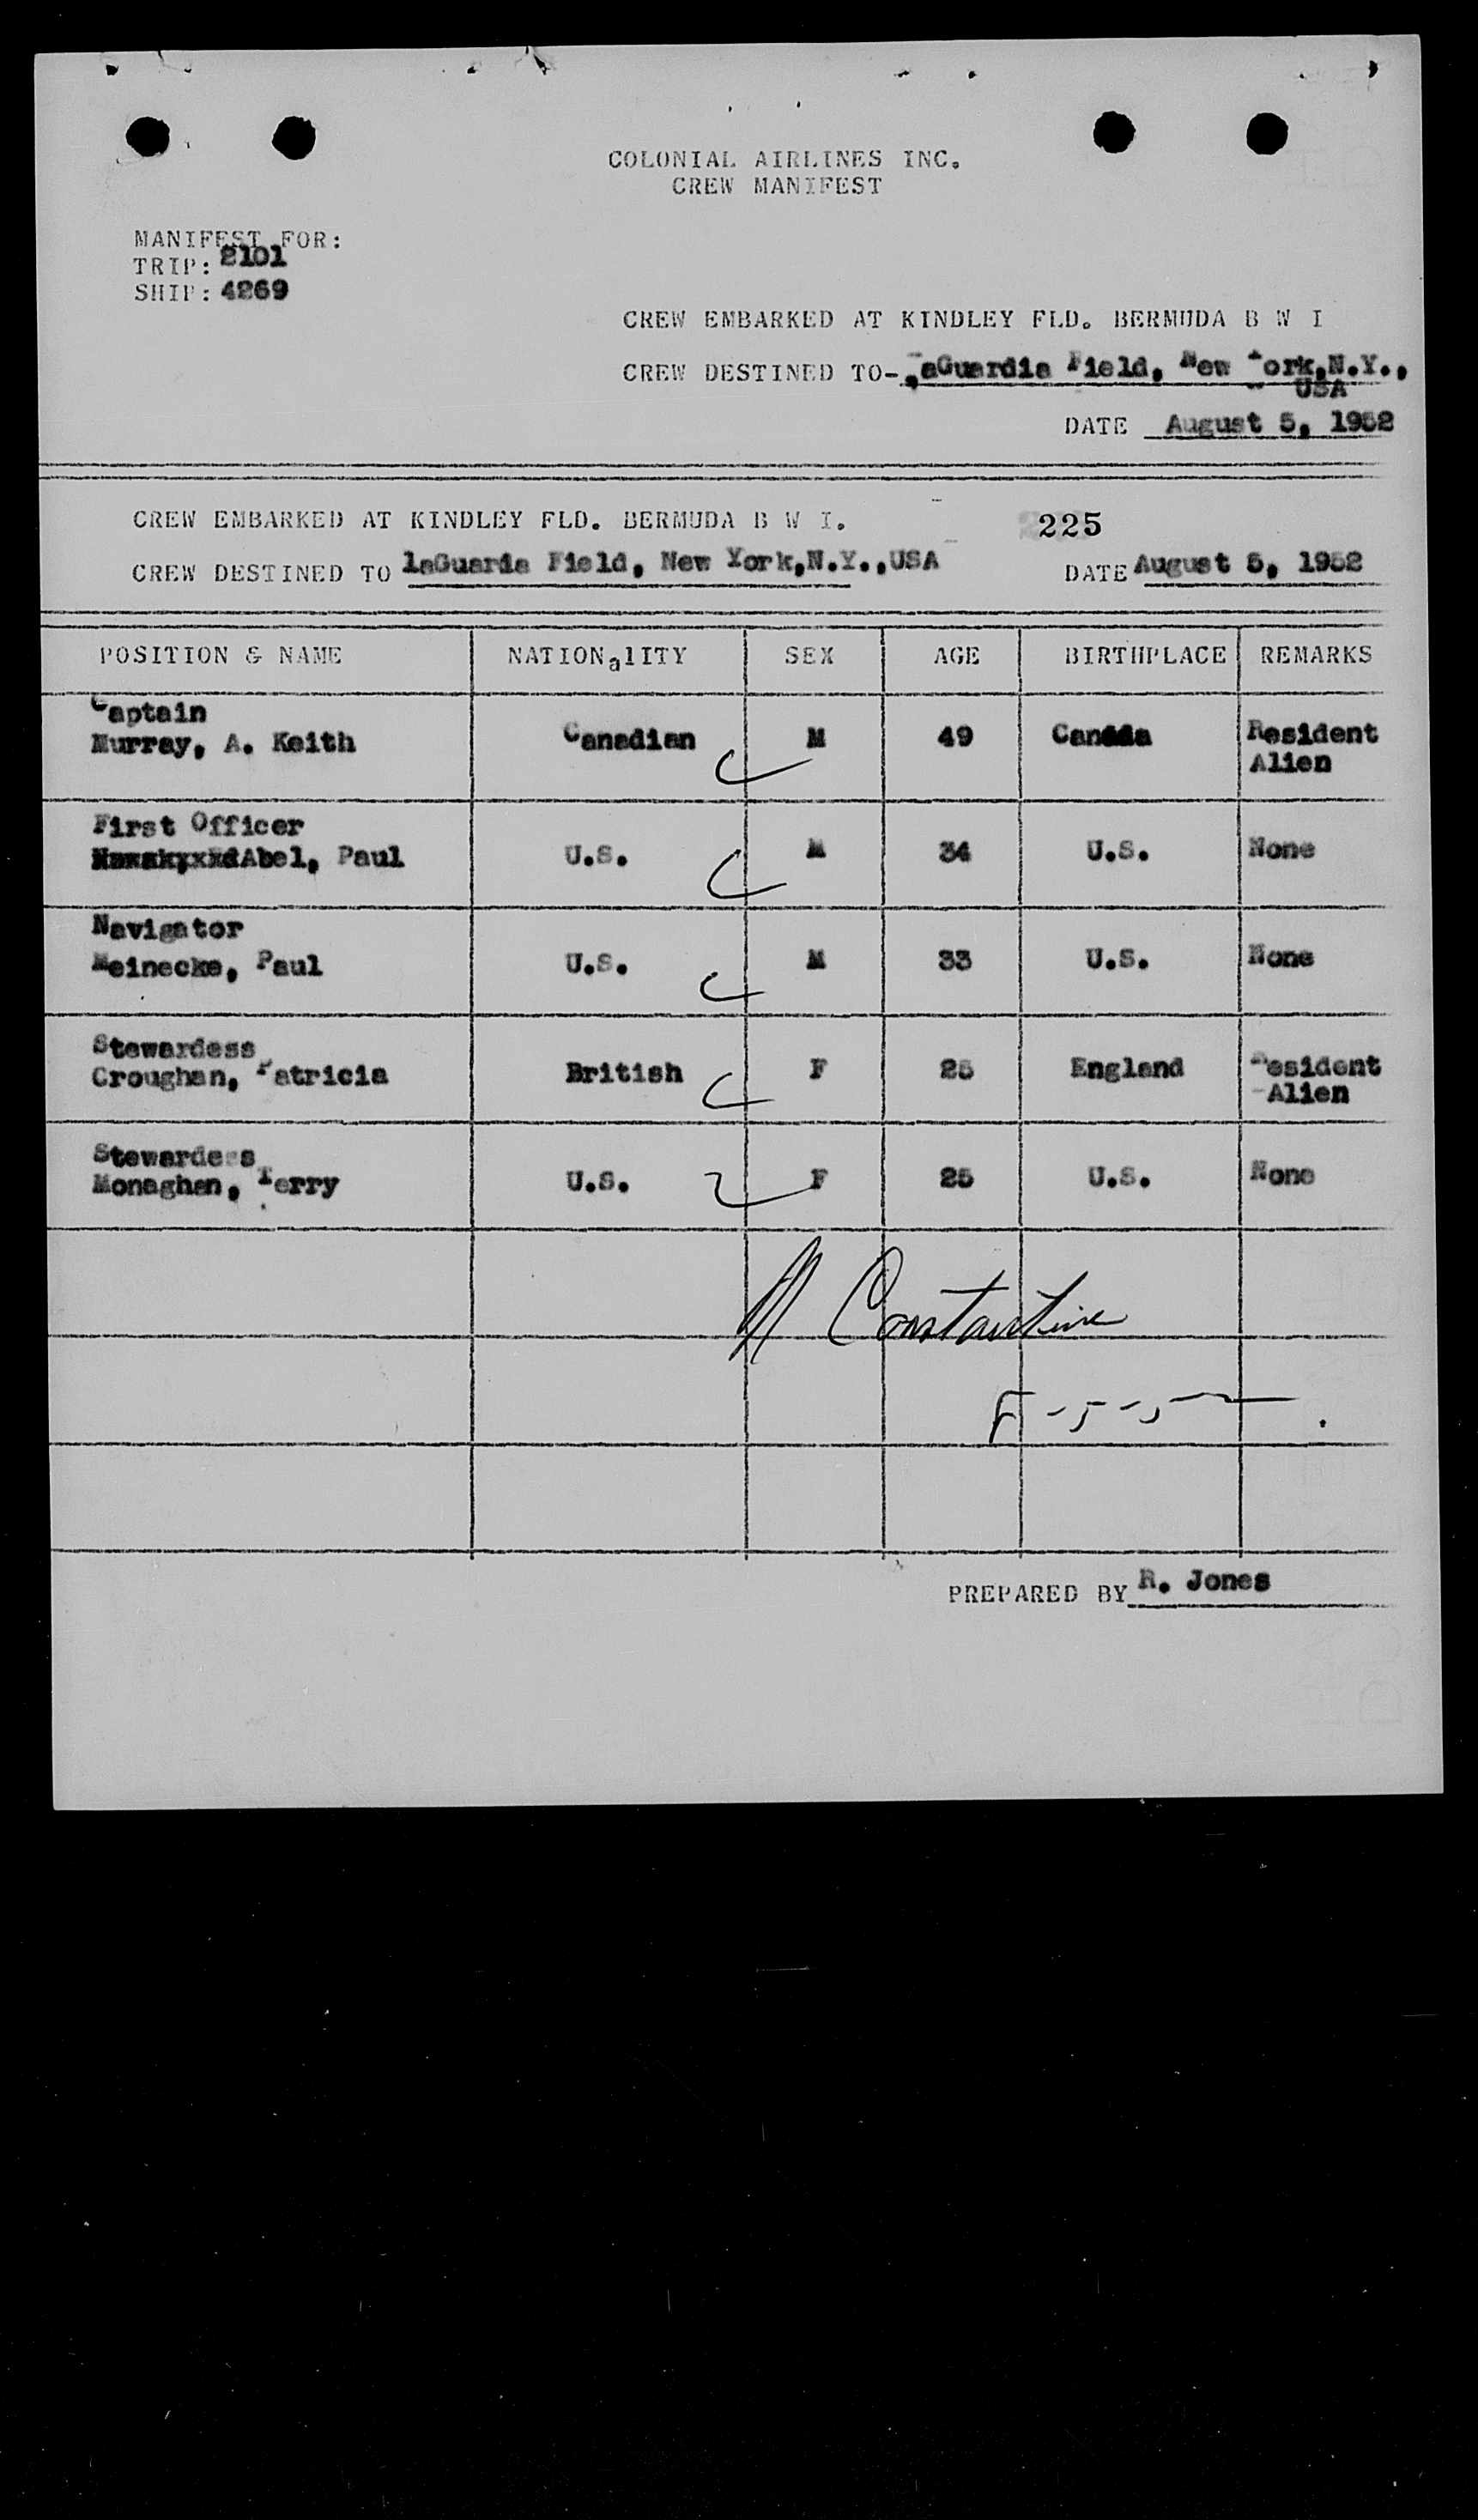 COLONIAL AIRLINES INC.
CREW MANIFEST
MANIFEST FOR:
TRIP: 2101
SHIP: 4269
CREW EMBARKED AT KINDLEY FLD. BERMUDA B W I
CREW DESTINED TO- LaGuardia Field, New York, N.Y.,
USA
DATE August 5, 1952
CREW EMBARKED AT KINDLEY FLD. BERMUDA B W I.
225
CREW DESTINED TO laGuarda Field, New York, N.Y., USA DATE August 5, 1952
POSITION & NAME NATIONalITY SEX AGE BIRTHPLACE REMARKS
Captain
Murray, A. Keith Canadian M 49 Canada Resident
Alien
First Officer
Abel, Paul U.S. M 34 U.S. None
Navigator
Meinecke, Paul U.S. M 33 U.S. None
Stewardess
Croughan, Patricia British F 25 England Resident
Alien
Stewardess
Monaghan, Terry U.S. F 25 U.S. None
Constantine
PREPARED BY R. Jones